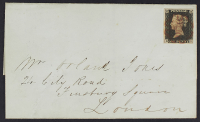 Mr Orland Jones
24 City Road
Finsbury Square
London